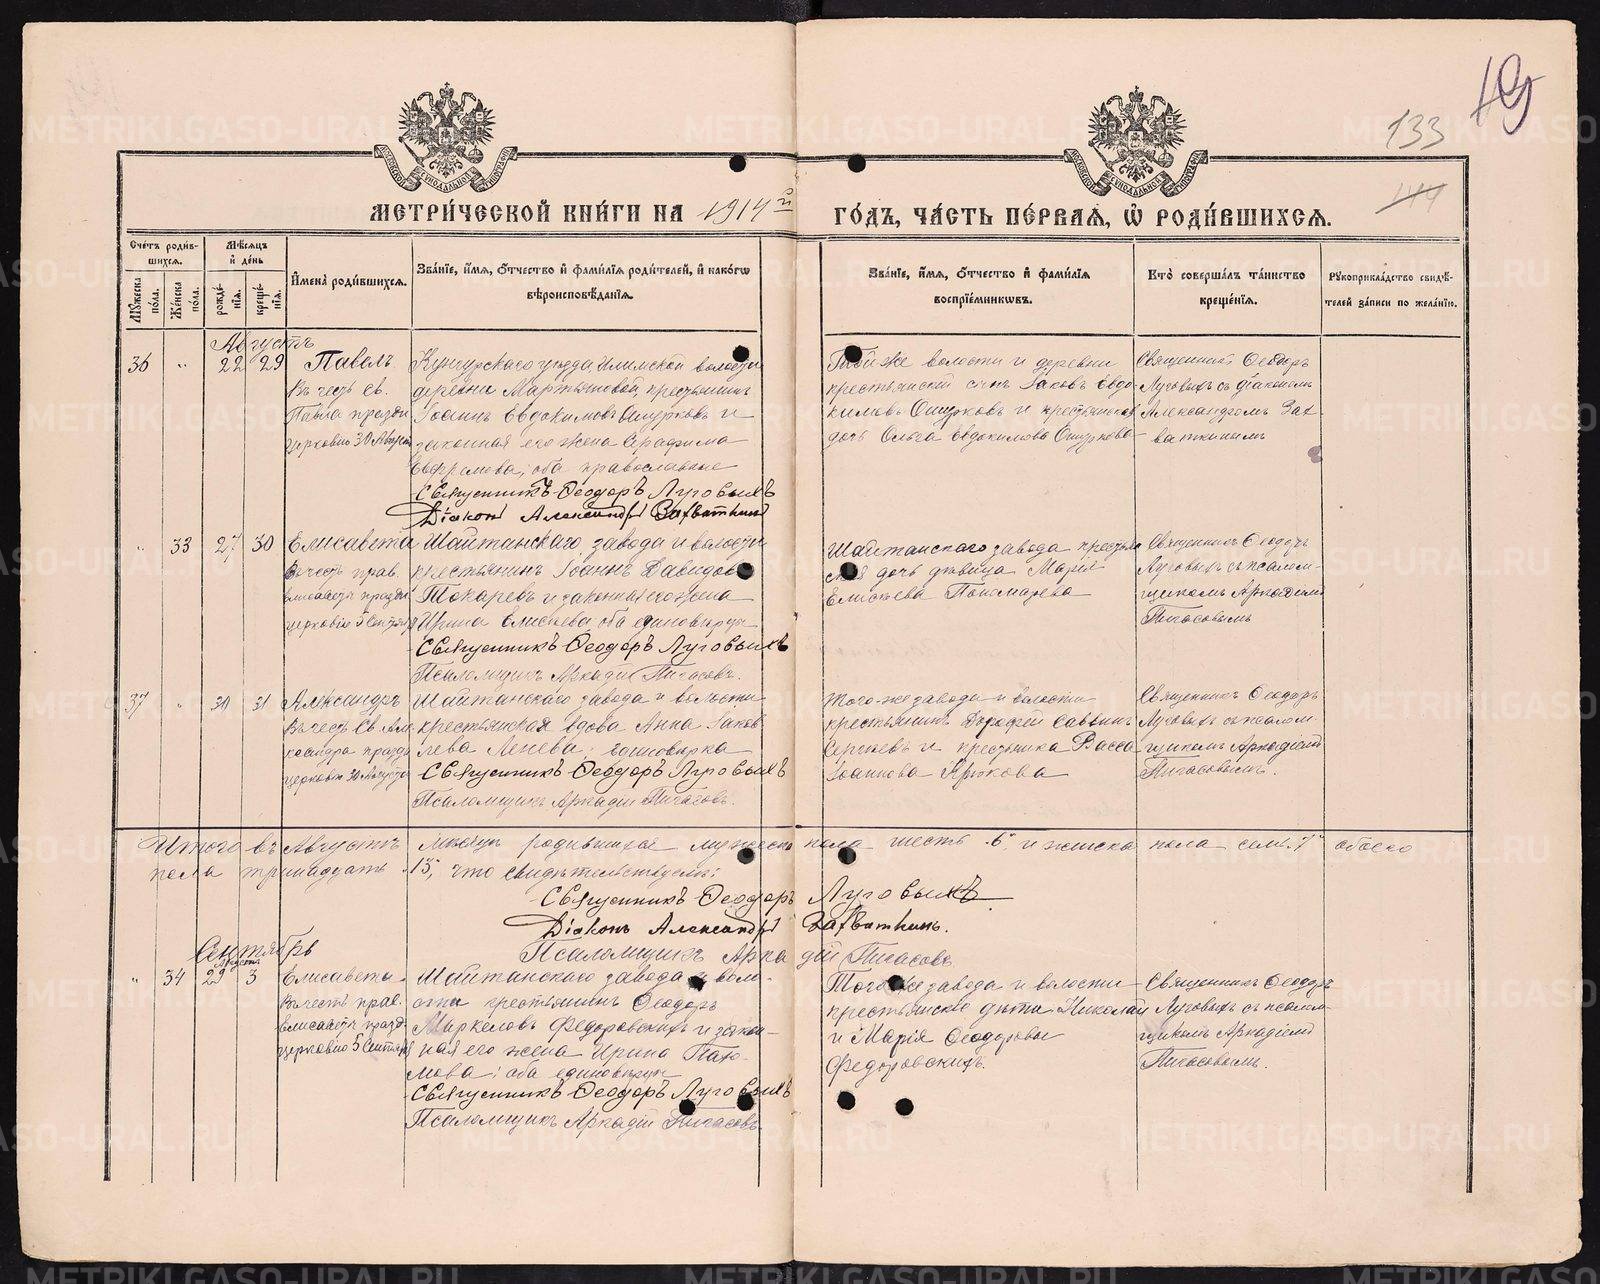 19
133
144
МЕТРИ́ЧЕСКОЙ КНИ́ГИ НА 1914й ГО́ДЪ, ЧА́СТЬ ПЕ́РВАЯ, Ѡ РОДИ́ВШИХСЯ.
Сче́тъ роди́в-
шихся.
Мꙋ́жеска по́ла.
Же́нска по́ла.
Мѣ́сяцъ
и де́нь
рожде́-
нія.
креще́-
нія.
Имена̀ роди́вшихся.
Зва́ніе, и́мя, о́тчество и фами́лія роди́телей, и како́гѡ
вѣроисповѣ́данія.
Зва́ніе, и́мя, о́тчество и фами́лія
воспріе́мниковъ.
Кто̀ соверша́лъ та́инство
креще́нія.
Рꙋкоприкла́дство свидѣ́-
телей за́писи по жела́нію.
Августъ
36 " 22 29 Павелъ
Въ честь Св.
Павла праздн.
церковію 30 Августа
Кунгурскаго уѣзда Илимской волости
деревни Мартьяновой, крестьянинъ
Іоаннъ Евдокимовъ Ошурковъ и
законная его жена Серафима
Ефремова, оба православные
Священникъ Ѳеодоръ Луговыхъ
Діаконъ Александръ Захваткинъ
Той же волости и деревни
крестьянскій сынъ Іаковъ Евдо-
кимовъ Ошурковъ и крестьянская
дочь Ольга Евдокимова Ошуркова
Священникъ Ѳеодоръ
Луговыхъ съ діакономъ
Александромъ Зах-
ваткинымъ
" 33 27 30 Елисавета
Въ честь прав.
Елисаветы праздн.
церковію 5 Сентября
Шайтанскаго завода и волости
крестьянинъ Іоаннъ Давидовъ
Токаревъ и законная его жена
Ирина Елисѣева, оба единовѣрцы
Священникъ Ѳеодоръ Луговыхъ
Псаломщикъ Аркадій Пигасовъ.
Шайтанскаго завода крестьян-
ская дочь дѣвица Марія
Елисѣева Пономарева
Священникъ Ѳеодоръ
Луговыхъ съ псалом-
щикомъ Аркадіемъ
Пигасовымъ
37 " 30 31 Александръ
Въ честь Св. Але-
ксандра праздн.
церковію 30 Августа
Шайтанскаго завода и волости
крестьянская вдова Анна Іаков-
лева Ленева; единовѣрка
Священникъ Ѳеодоръ Луговыхъ
Псаломщикъ Аркадій Пигасовъ.
Того-же завода и волости
крестьянинъ Дорофей Саввинъ
Сергѣевъ и крестьянка Васса
Іоаннова
Священникъ Ѳеодоръ
Луговыхъ съ псалом-
щикомъ Аркадіемъ
Пигасовымъ.
Итого въ Августѣ мѣсяцѣ родившихся мужеска пола шесть „6" и женска пола семь „7" обоего
пола тринадцать „13", что свидѣтельствуемъ:
Священникъ Ѳеодоръ Луговыхъ
Діаконъ Александръ Захваткинъ.
Псаломщикъ Аркадій Пигасовъ
Сентябрь
Августа
" 34 29 3 Елисавета
Въ честь прав.
Елисаветы празд.
церковію 5 Сентября
Шайтанскаго завода и воло-
сти крестьянинъ Ѳеодоръ
Маркеловъ Федоровскихъ и закон-
ная его жена Ирина Пахо-
мова; оба единовѣрцы
Священникъ Ѳеодоръ Луговыхъ
Псаломщикъ Аркадій Пигасовъ
Того же завода и волости
крестьянскіе дѣти Николай
и Марія Ѳеодоровы
Федоровскихъ.
Священникъ Ѳеодоръ
Луговыхъ съ псалом-
щикомъ Аркадіемъ
Пигасовымъ.
METRIKI.GASO-URAL.RU